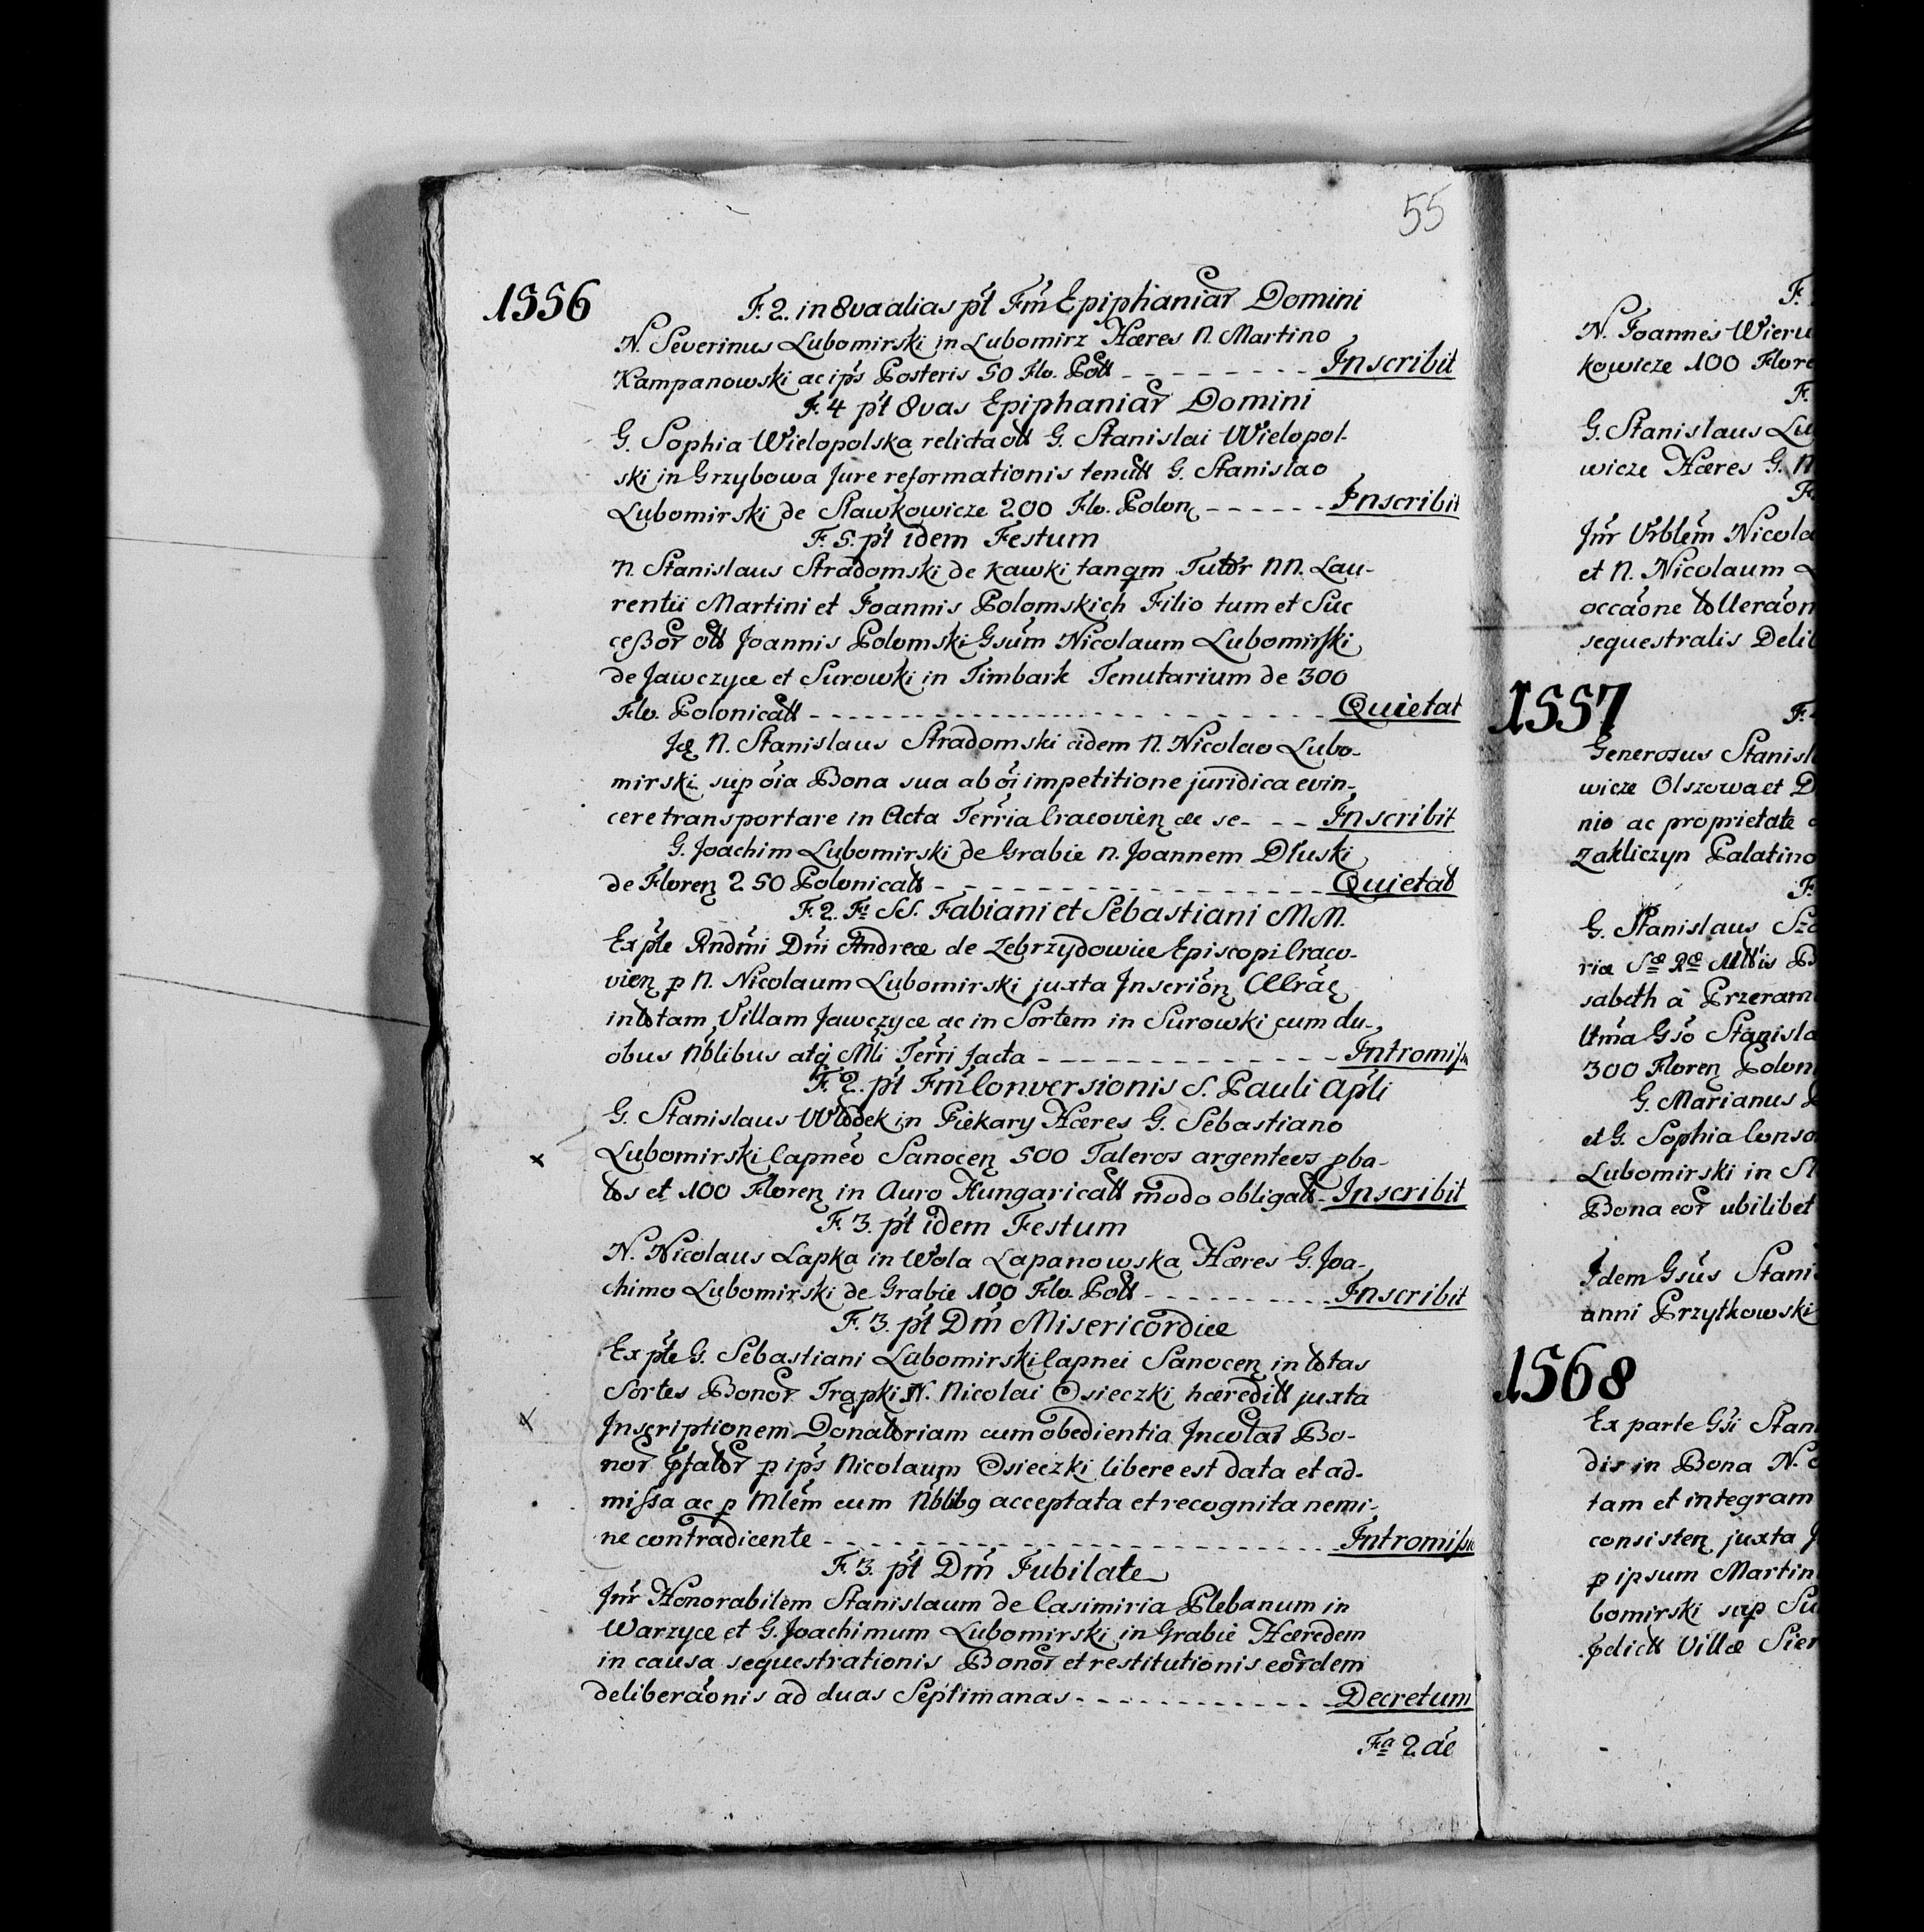 55
1556
F. 2. in 8va alias pt Fm Epiphaniar Domini
N. Severinus Lubomirski in Lubomirz Hæres N. Martino
Kampanowski ac ips Posteris 50 Flo. Poll - - - - - - - - Inscribit
F. 4 pt 8vas Epiphaniar Domini
G. Sophia Wielopolska relicta olt G. Stanislai Wielopol-
ski in Grzybowa Jure reformationis tenutt G. Stanislao
Lubomirski de Sławkowicze 200 Flo. Polon - - - - - - Inscribit
F. 5. pt idem Festum
N. Stanislaus Stradomski de Kawki tanqm Tutor NN. Lau-
rentii Martini et Joannis Polomskich Filio tum et Suc
ceßor olt Joannis Polomski Gsum Nicolaum Lubomirski
de Jawczyce et Surowki in Timbark Tenutarium de 300
Flo. Polonicatt - - - - - - - - - - - - - - - - Quietat
N. Stanislaus Stradomski eidem N. Nicolao Lubo-
mirski sup oia Bona sua ab oi impetitione juridica evin-
cere transportare in Acta Terria Cracovien de se - - - Inscribit
G. Joachim Lubomirski de Grabie N. Joannem Dłuski
de Floren 250 Polonicatt - - - - - - - - - - - - - Quietat
F. 2. Fi SS. Fabiani et Sebastiani MM.
Ex pte Rndmi Dni Andreæ de Zebrzydowice Episcopi Craco-
vien p N. Nicolaum Lubomirski juxta Inscrion
in totam Villam Jawczyce ac in Sortem in Surowki cum du-
obus Nblibus atq Mli Terri facta - - - - - - - - - - Intromiss
F. 2. pt Fm Conversionis S. Pauli Apli
G. Stanislaus Włodek in Piekary Hæres G. Sebastiano
Lubomirski Capneo Sanocen 500 Taleros argenteos pba-
tos et 100 Floren in Auro Hungaricatt modo obligatt - Inscribit
F. 3. pt idem Festum
N. Nicolaus Lapka in Wola Lapanowska Hæres G. Joa-
chimo Lubomirski de Grabie 100 Flo. Poll - - - - - - - - Inscribit
F. 3. pt Dm Misericordiæ
Ex pte G. Sebastiani Lubomirski Capnei Sanocen in totas
Sortes Bonor Trąpki N. Nicolai Osieczki hæreditt juxta
Inscriptionem Donatoriam cum obedientia Incolar Bo-
nor pfator p ips Nicolaum Osieczki libere est data et ad-
missa ac p Mlem cum Nblibq acceptata et recognita nemi-
ne contradicente - - - - - - - - - - - - - - - - Intromiss
F. 3. pt Dm Jubilate
Inr Honorabilem Stanislaum de Casimiria Plebanum in
Warzyce et G. Joachimum Lubomirski in Grabie Hæredem
in causa sequestrationis Bonor et restitutionis eordem
deliberaonis ad duas Septimanas - - - - - - - - - - Decretum
Fa 2 dæ
F.
N. Joannes Wieru
kowicze 100 Flore
F.
G. Stanislaus Lu
wicze Hæres G. N
F.
Inr Vrblem Nicola
et N. Nicolaum
occaone tolleraon
sequestralis Delib
1557
F.
Generosus Stanisl
wicze Olszowa et D
nio ac proprietate
Zakliczyn Palatino
F.
G. Stanislaus Szc
ria Sæ Ræ Mttis
sabeth à Przeram
ltma Gso Stanisla
300 Floren Polon
G. Marianus
et G. Sophia Conso
Lubomirski in Sł
Bona eor ubilibet
Idem Gsus Stani
anni Przyłkowski
1568
Ex parte Gsi Stan
dis in Bona N.
tam et integram
consisten juxta
p ipsum Martin
bomirski sup Su
pdictt Villæ Sier